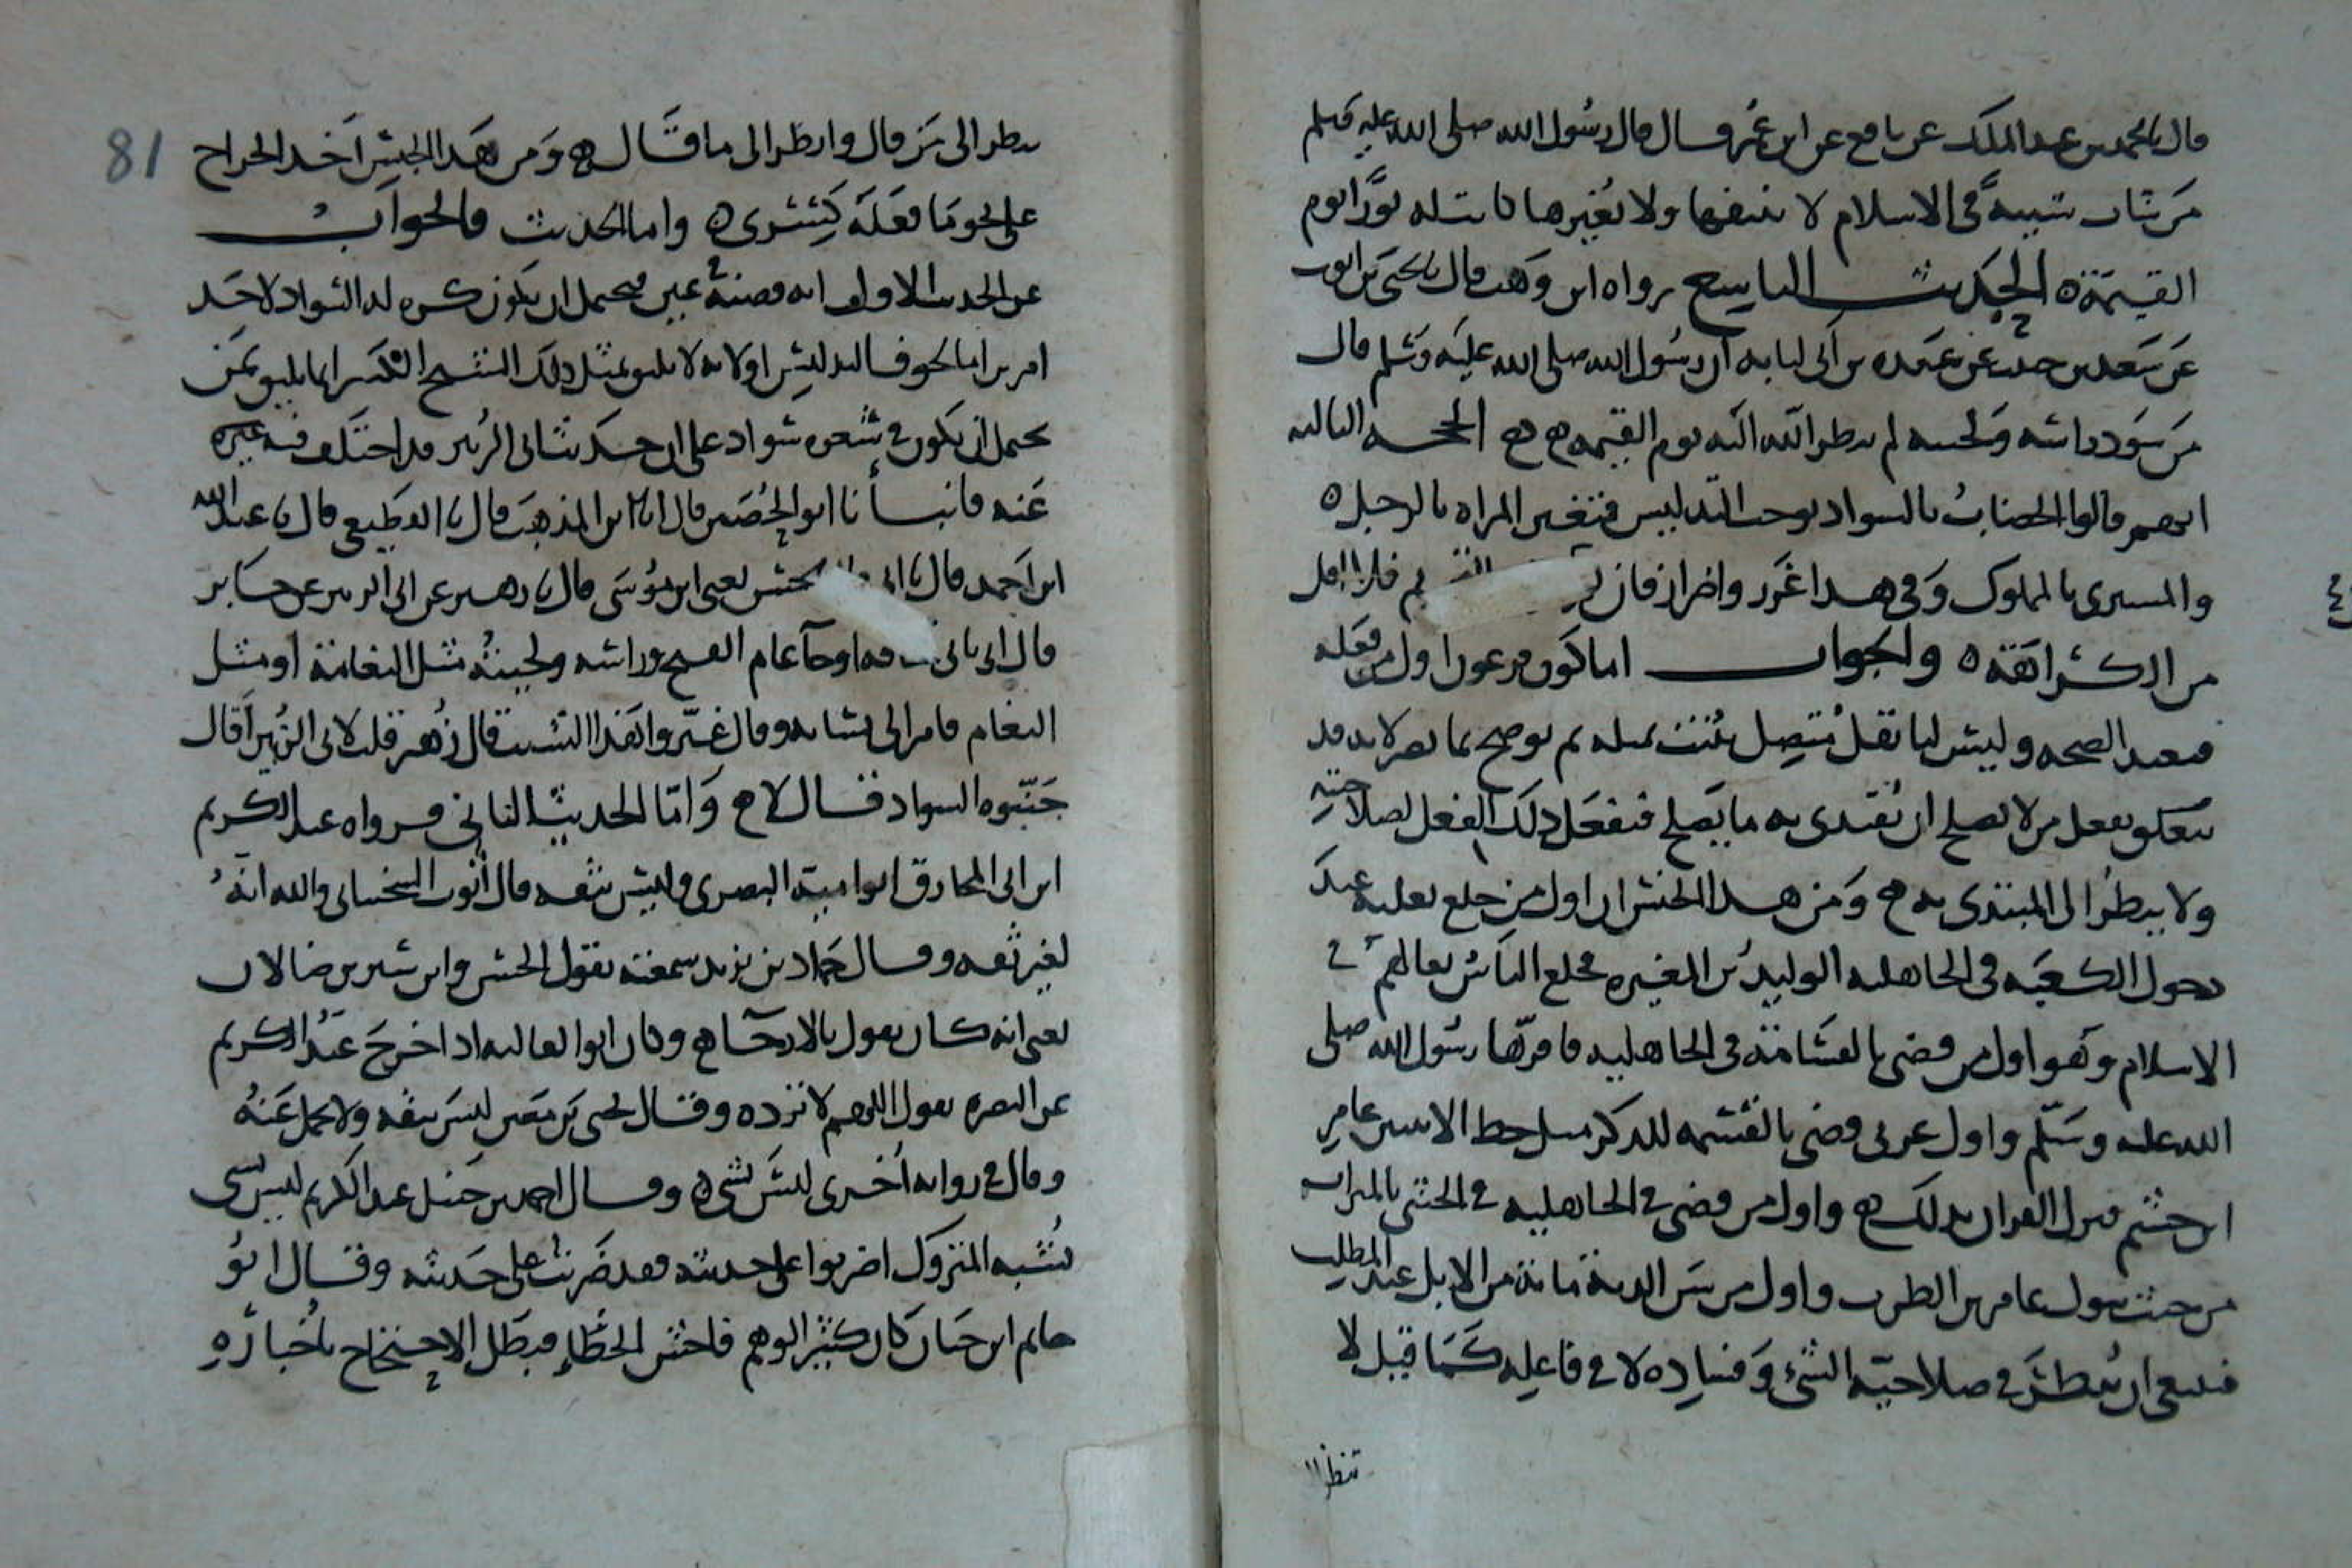 قال نا محمد بن عبد الملك عن نافع عن ابن عمر قال قال رسول الله صلى الله عليه وسلم
من شاب شيبة في الاسلام لا ينتفها ولا يغيرها كانت له نورا يوم
القيمة ه الحديث التاسع رواه ابن وهب قال نا يحيى بن ايوب
عن سعد بن عن عبده بن ابي لبابه ان رسول الله صلى الله عليه وسلم قال
من سود راسه ولحيته لم ينظر الله اليه يوم القيمه ه الحجه الثالثه
انهم قالوا الخضاب بالسواد يوجب التدليس فتغتر المراه بالرجل ه
والمشترى بالمملوك وفي هذا غرر واضرار فان لم فلا اقل
من الكراهة ه والجواب اما كون فرعون اول من فعله
فبعيد الصحه وليس لنا نقل متصل يثبت بمثله ثم لو صح بما نصر لانه قد
يتعلق بفعل من لا يصلح ان يقتدى به ما يصلح فنفعل ذلك الفعل لصلاحيته
ولا ينظر الى المبتدى به ه ومن هذا الجنس ان اول من خلع نعليه عند
دخول الكعبه في الجاهليه الوليد بن المغيره فخلع الناس نعالهم في
الاسلام وهو اول من قضى بالقسامة في الجاهليه فاقرها رسول الله صلى
الله عليه وسلم واول عربى قضى بالقسمه للذكر مثل حظ الانثيين عامر
ابن جشم فنزل القران بذلك ه واول من قضى في الجاهليه في الخنثى بالميراث
من حيث يبول عامر بن الظرب واول من سن الدية مائة من الابل عبد المطلب
فينبغى ان ينظر في صلاحية الشئ وفساده لا في فاعله كما قيل لا
تنظر
81
ينظر الى من قال وانظر الى ما قال ه ومن هذا الجنس اخذ الخراج
على نحو ما فعله كسرى ه واما الحديث فالجواب
عن الحديث الاول انه قضية عين فيحتمل ان يكون كره له السواد لاحد
امرين اما لخوف التدليس اولانه لا يليق بمثل ذلك الشيخ الكبير انما يليق بمن
يحتمل ان يكون في شعره سواد على ان حديث ابى الزبير قد اختلف فيه غيره
عنه فانبانا ابو الحصين قال انا ابن المذهب قال نا القطيعى قال نا عبد الله
ابن احمد قال نا ابى قال حسن يعنى ابن موسى قال نا زهير عن ابى الزبير عن جابر
قال اتى بابى قحافه اوجاء عام الفتح وراسه ولحيته مثل الثغامة او مثل
الثغام فامر الى نسائه وقال غيروا هذا الشيب قال زهير قلت لابى الزبير اقال
جنبوه السواد قال لا ه واما الحديث الثانى فرواه عبد الكريم
ابن ابى المخارق ابو امية البصرى وليس بثقه قال ايوب السختيانى والله انه
لغير ثقه وقال حماد بن زيد سمعته يقول الحسن وابن سيرين ضالان
يعنى انه كان يقول بالارجاء ه وكان ابو العاليه اذا خرج عبد الكريم
عن البصره يقول اللهم لا ترده وقال يحيى بن معين ليس بثقه ولا يحمل عنه
وقال في روايه اخرى ليس بشئ ه وقال احمد بن حنبل عبد الكريم ليس بشى
يشبه المتروك اضربوا على حديثه فقد ضربت على حديثه وقال ابو
حاتم ابن حبان كان كثير الوهم فاحش الخطاء فبطل الاحتجاج باخباره